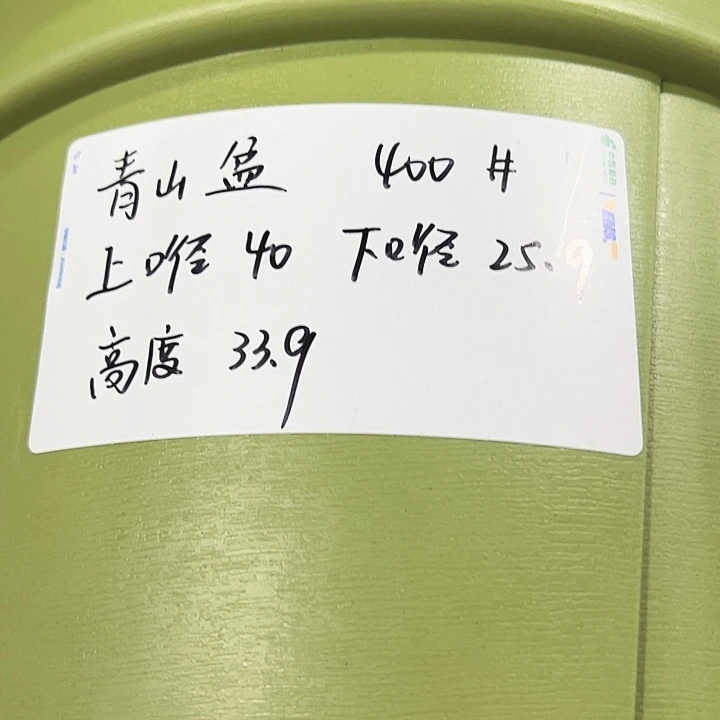 青山盆 400#
上口径 40 下口径 25.9
高度 33.9